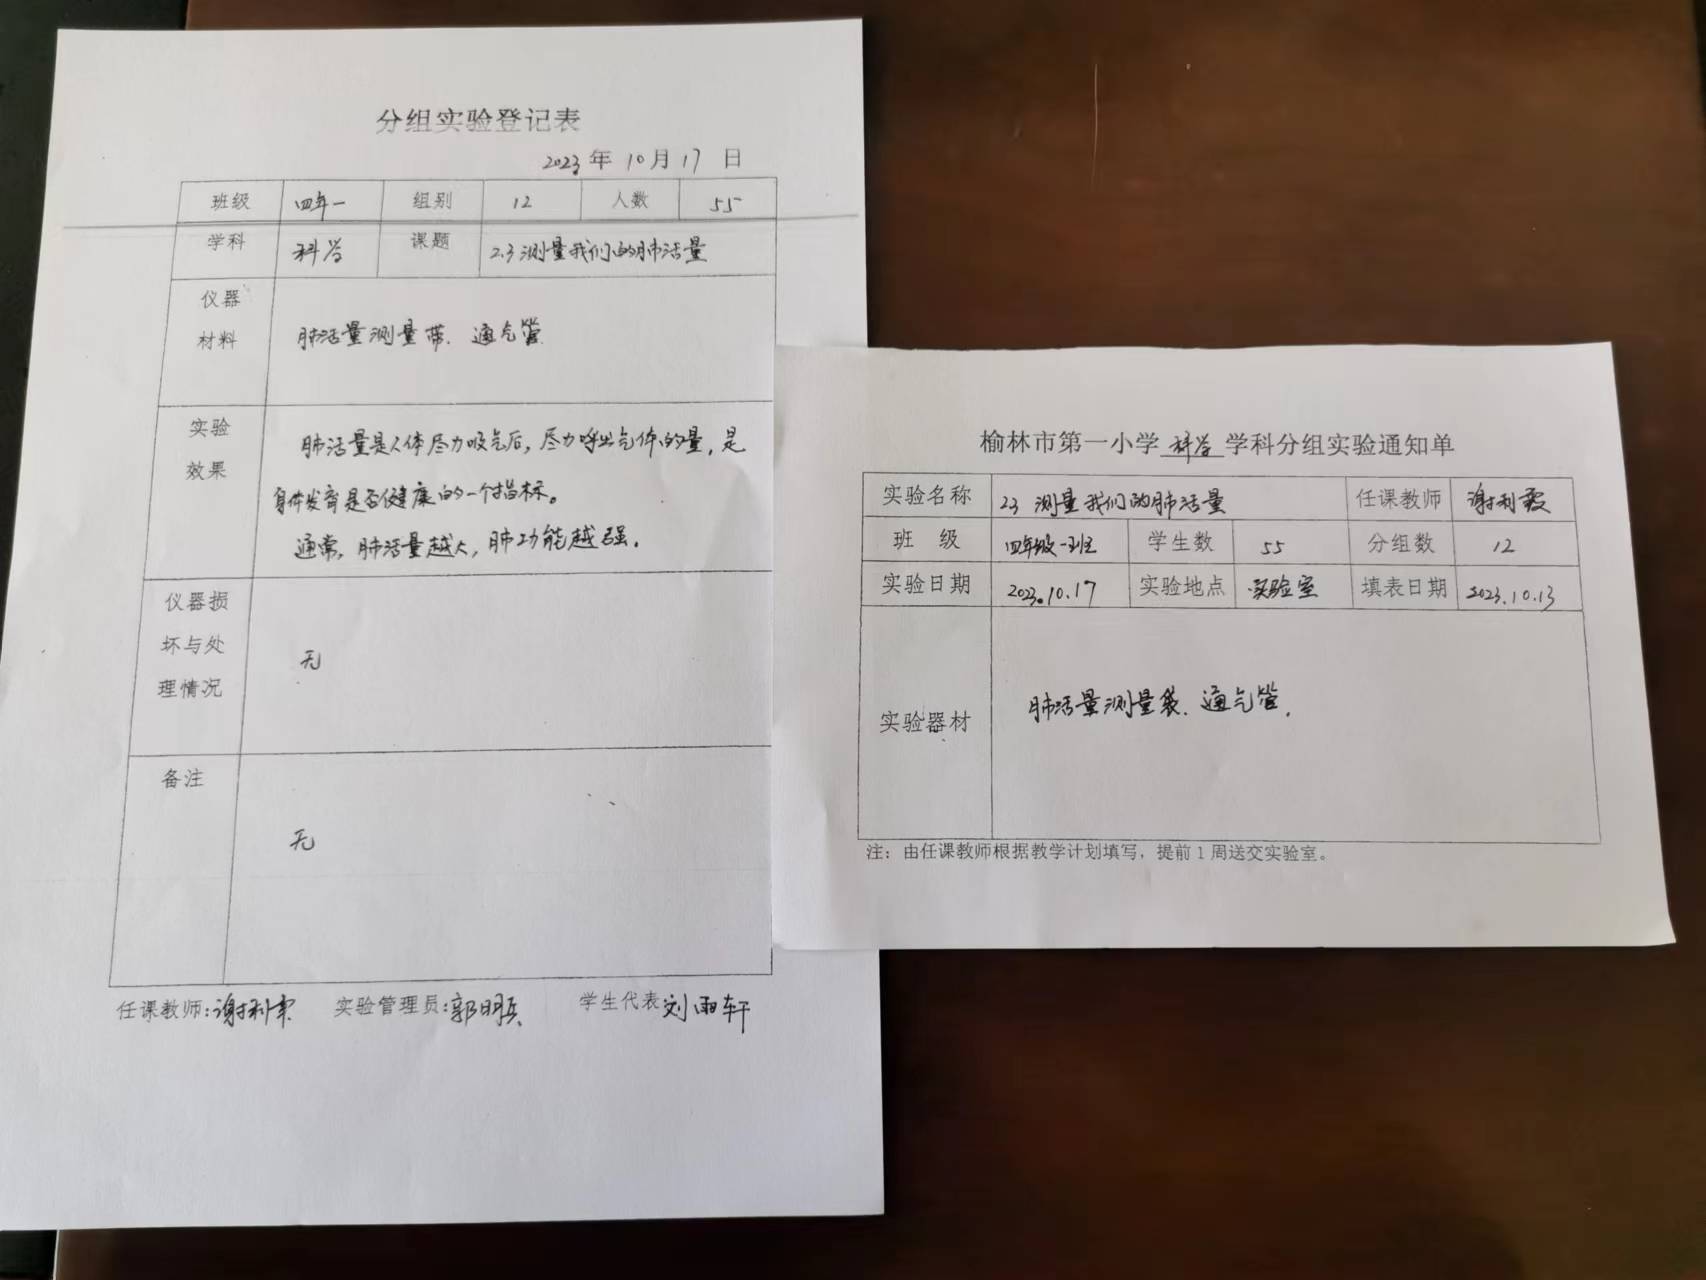 分组实验登记表
2023年10月17日
班级 四年一 组别 12 人数 55
学科 科学 课题 2.3测量我们的肺活量
仪器
材料
肺活量测量带、通气管
实验
效果
肺活量是人体尽力吸气后,尽力呼出气体的量,是
身体发育是否健康的一个指标。
通常,肺活量越大,肺功能越强。
仪器损
坏与处
理情况
无
备注
无
任课教师:谢利霞 实验管理员:郭明兵 学生代表 刘雨轩
榆林市第一小学 科学 学科分组实验通知单
实验名称 2.3 测量我们的肺活量 任课教师 谢利霞
班 级 四年级一班 学生数 55 分组数 12
实验日期 2023.10.17 实验地点 实验室 填表日期 2023.10.13
实验器材 肺活量测量袋、通气管.
注:由任课教师根据教学计划填写,提前1周送交实验室。